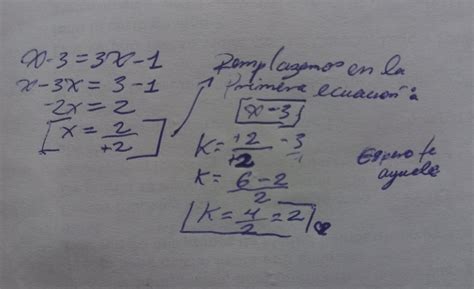 x-3=3x-1
x-3x=3-1
-2x=2
[x=2/+2]
Remplazamos en la
primera ecuación:
[x-3]
K=+2/+2 -3/1
K=6-2/2
[K=4/2=2]
Espero te
ayude